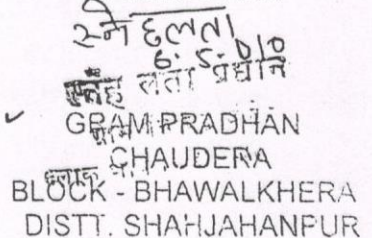 स्नेहलता
6.5.010
स्नेह लता प्रधान
GRAM PRADHAN
CHAUDERA
BLOCK - BHAWALKHERA
DISTT. SHAHJAHANPUR